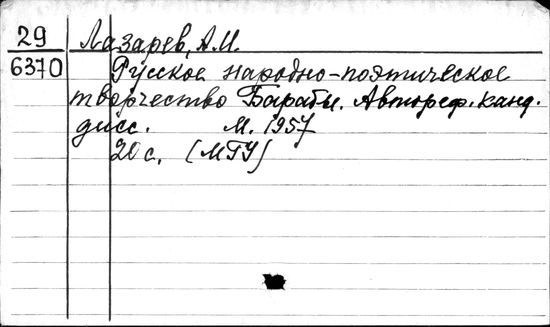 29 Лазарев, А.И.
6370 Русское народно-поэтическое
творчество Барабы. Автореф. канд.
дисс. М. 1957
20 с. (МГУ)